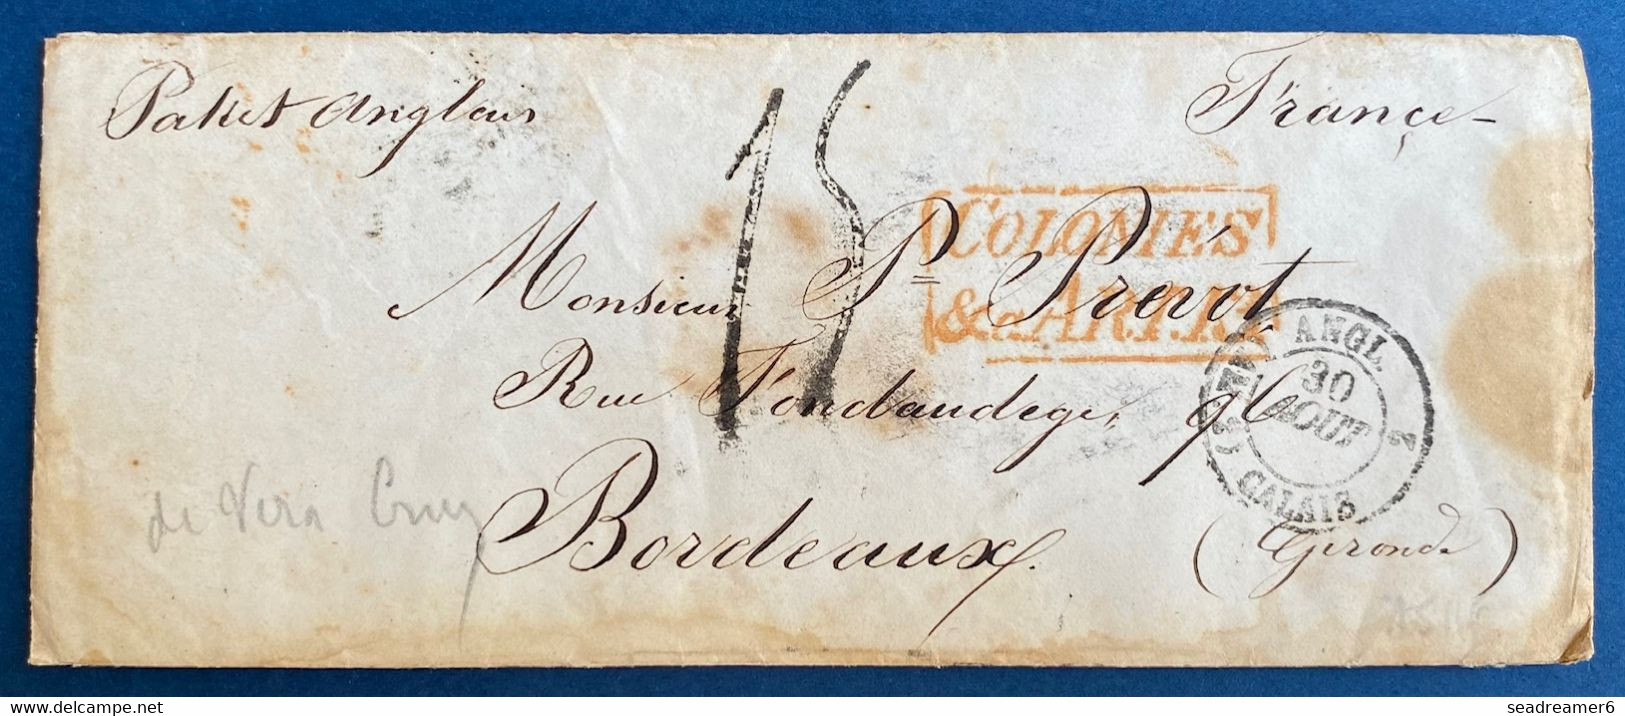 Paket Anglais
France
15
COLONIES
&c. ART.
Monsieur P. Prévot,
Rue Fondaudège, 96
ANGL.
30
AOUT
2
CALAIS
2
de Vera Cruz
Bordeaux.
(Gironde)
delcampe.net
seadreamer6